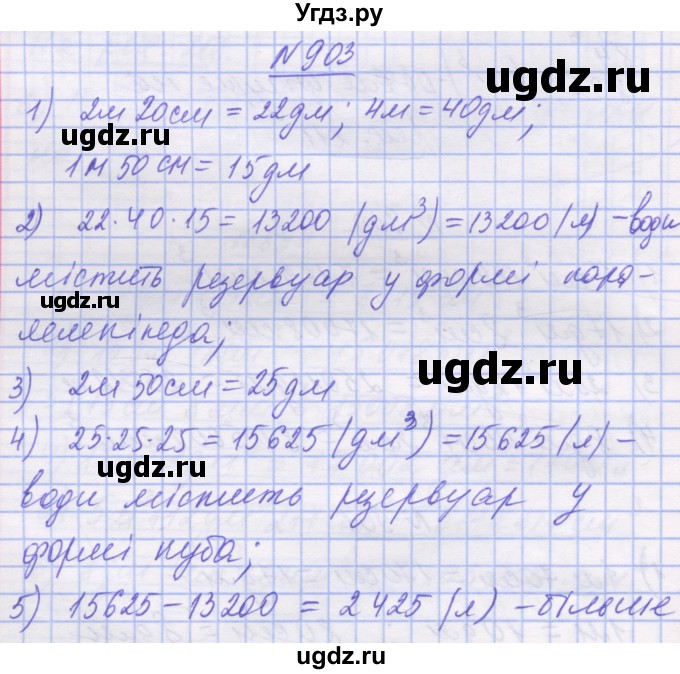 Угдз.ру
№903
ugdz.ru
1) 2м 20см = 22дм; 4м = 40дм;
ugdz.ru
1м 50 см = 15дм
2) 22·40·15 = 13200 (дм³) = 13200 (л) – води
ugdz.ru
містить резервуар у формі пара-
ugdz.ru
лелепіпеда;
ugdz.ru
3) 2м 50см = 25дм
4) 25·25·25 = 15625 (дм³) = 15625 (л) –
ugdz.ru
води містить резервуар у
ugdz.ru
формі куба;
ugdz.ru
5) 15625 – 13200 = 2425 (л) – більше
ugdz.ru